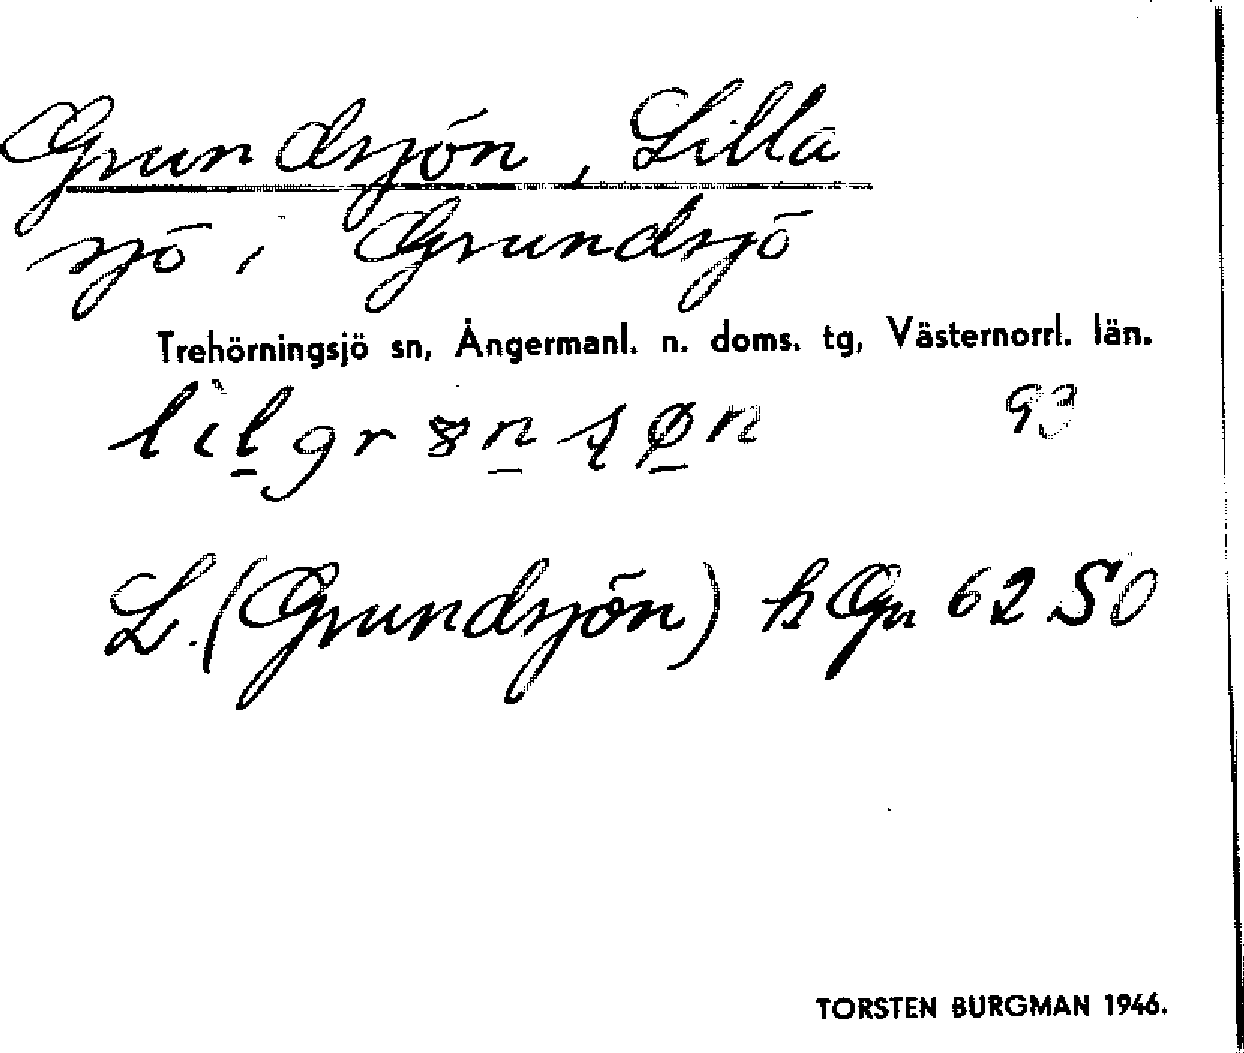 Grundsjön, Lilla
sjö i Grundsjö
Trehörningsjö sn, Ångermanl. n. doms. tg, Västernorrl. län.
93
L. (Grundsjön) hGn 62 SO
TORSTEN BURGMAN 1946.